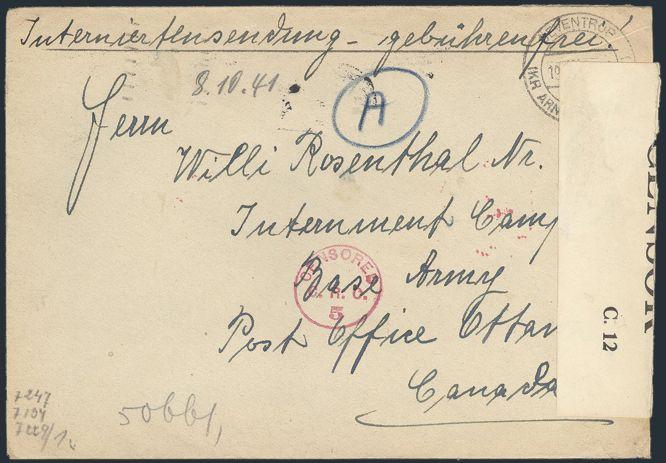 Interniertensendung - gebührenfrei!
8.10.41
A
Herrn
Willi Rosenthal Nr.
Internment Camp
Base Army
Post Office Ottaw
Canada
CENSORED
5
CENSOR
C. 12
7247